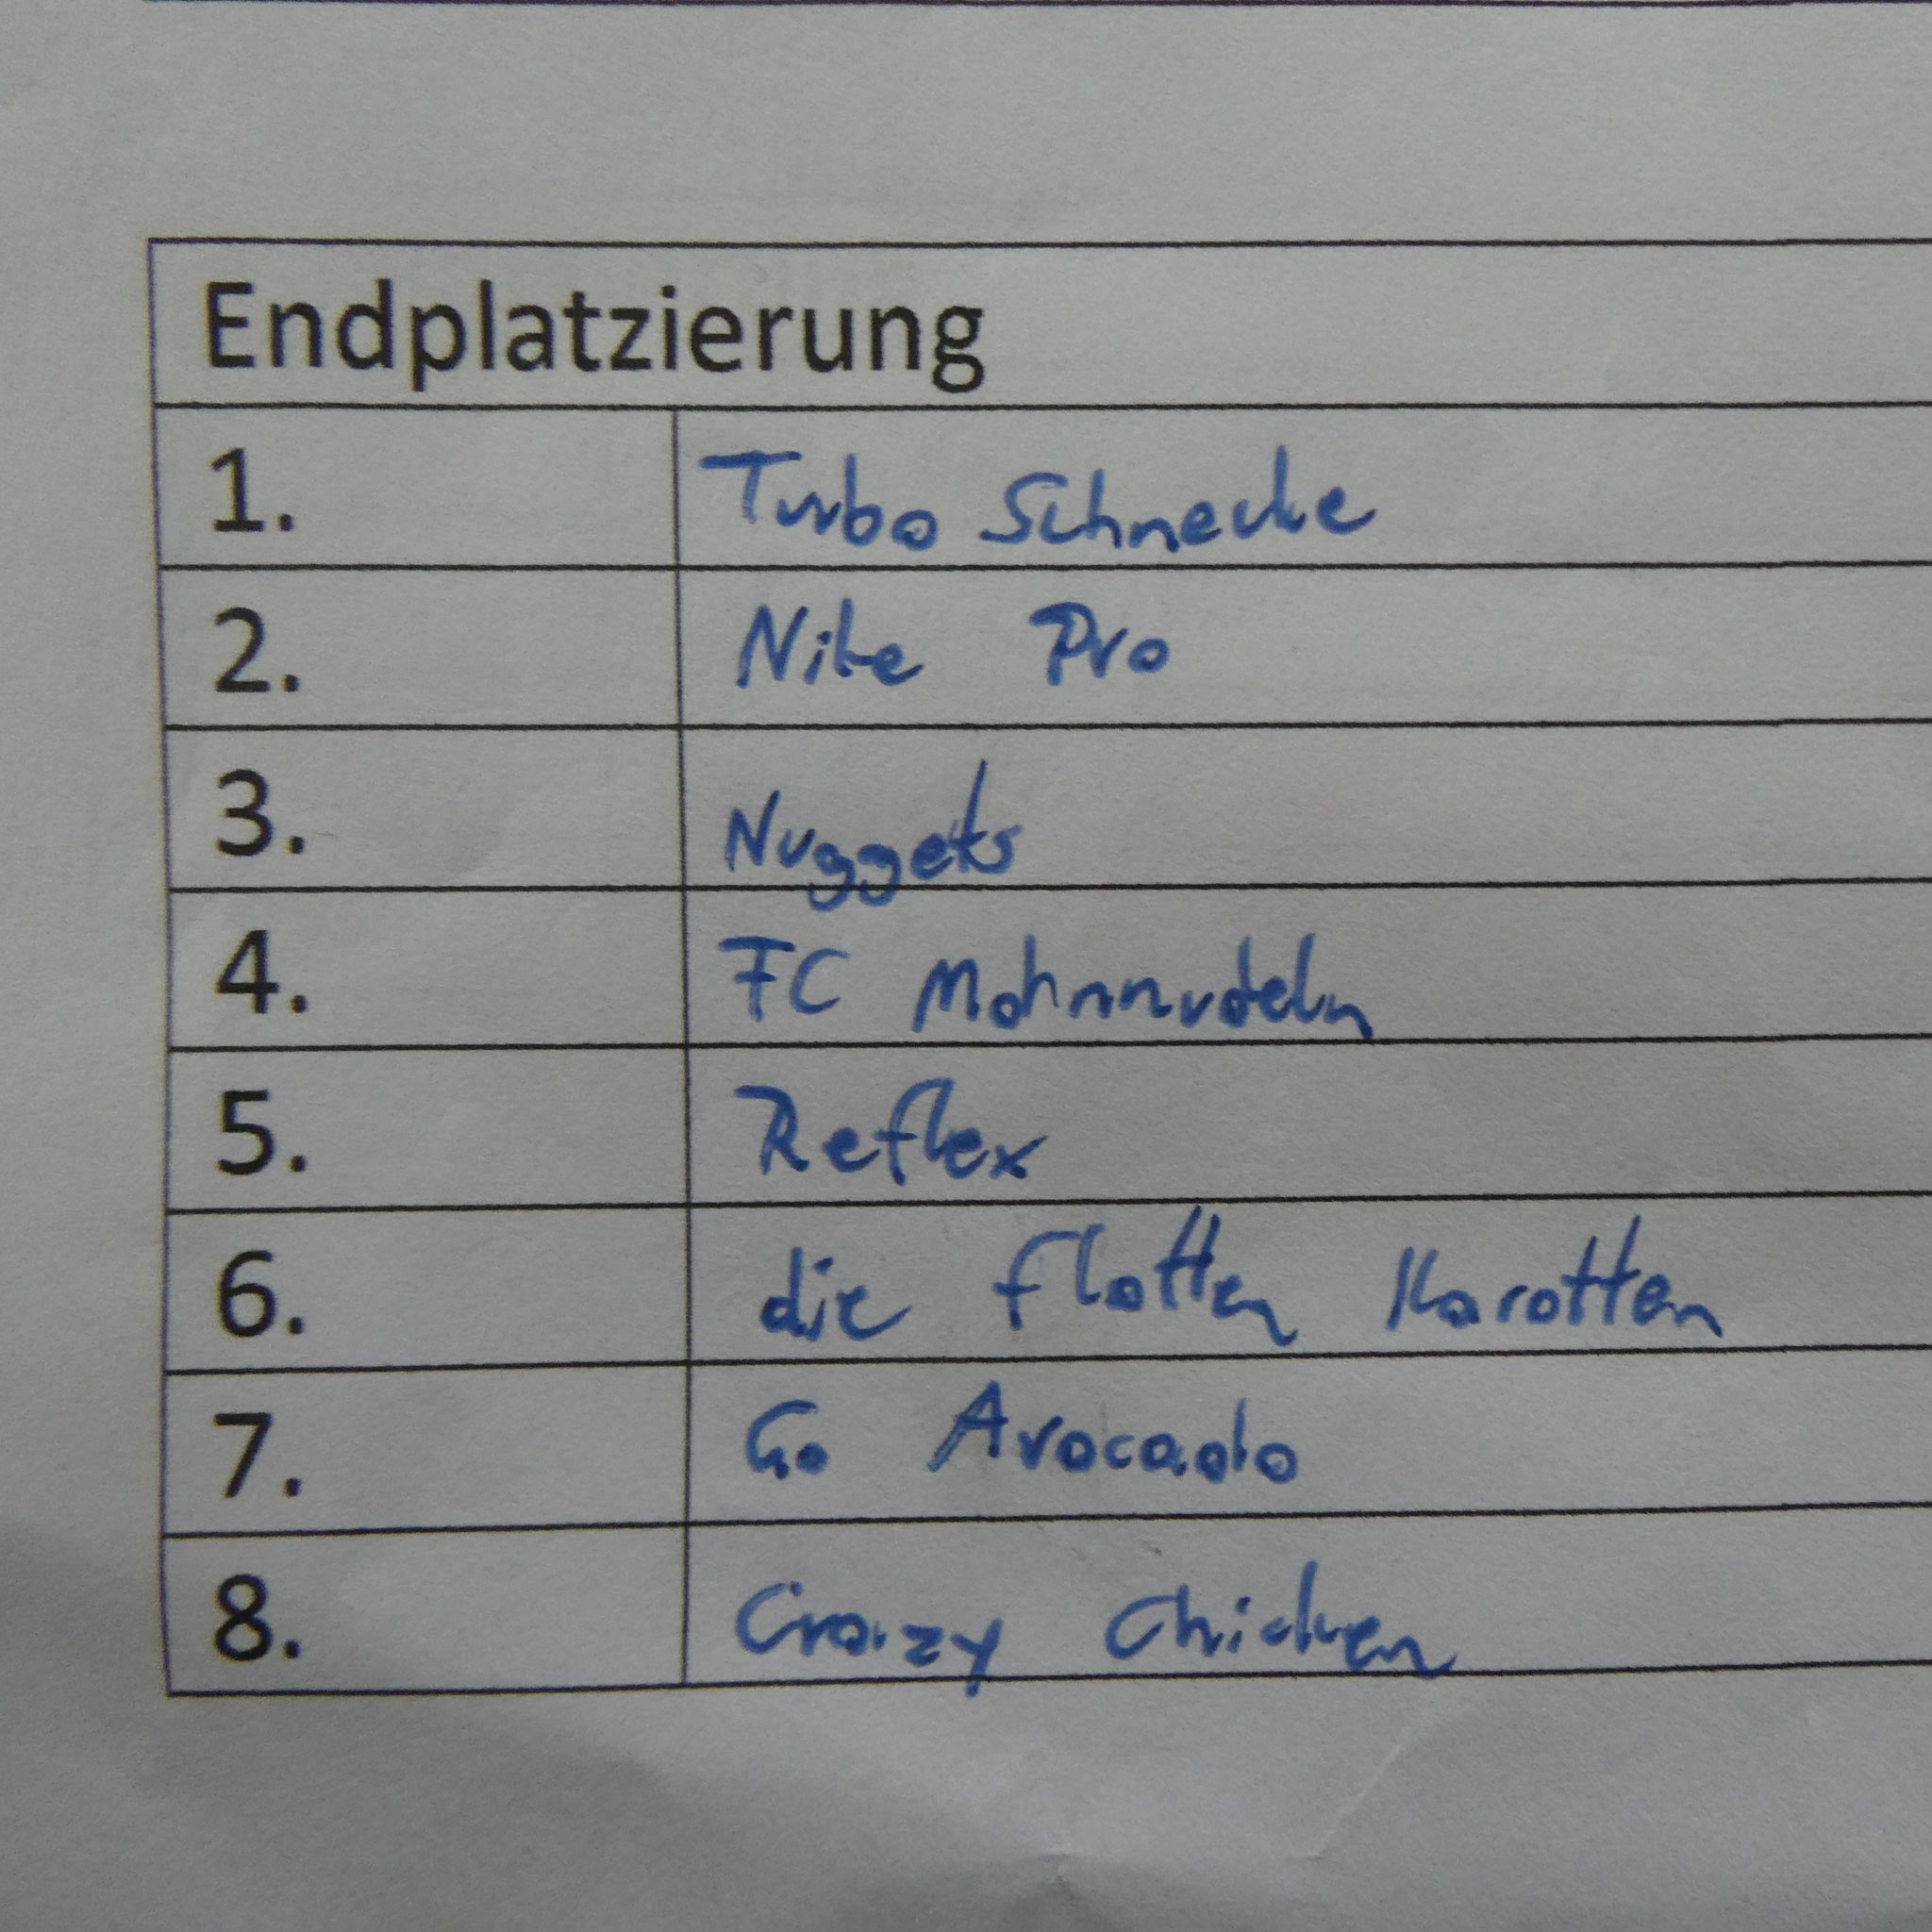 Endplatzierung
1. Turbo Schnecke
2. Nike Pro
3. Nuggets
4. FC Mohnnudeln
5. Reflex
6. die flotten Karotten
7. Go Avocado
8. Crazy Chicken